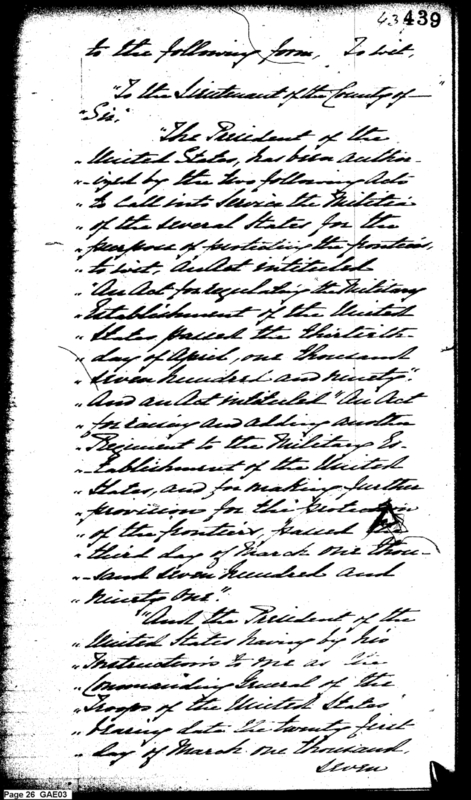 43 439
to the following form, To wit,
"To the Lieutenant of the County of—
"Sir,"
"The President of the
"United States, has been author-
"ized by the two following Acts
"to call into service the Militia
"of the several States for the
"purpose of protecting the frontiers,
"to wit, An Act intituled
"An Act for regulating the Military
"Establishment of the United
"States passed the thirtieth
"day of April, one thousand
"seven hundred and ninety".
"And an Act intituled "An Act
"for raising and adding another
"Regiment to the Military Es-
"tablishment of the United
"States, and for making further
"provision for the protection
"of the frontiers, passed the
"third day of March one thou-
"sand seven hundred and
"Ninety One".
"And the President of the
"United States having by his
"Instructions to me as the
"Commanding General of the
"Troops of the United States
"bearing date the twenty first
"day of March one thousand,
seven
Page 26 GAE03